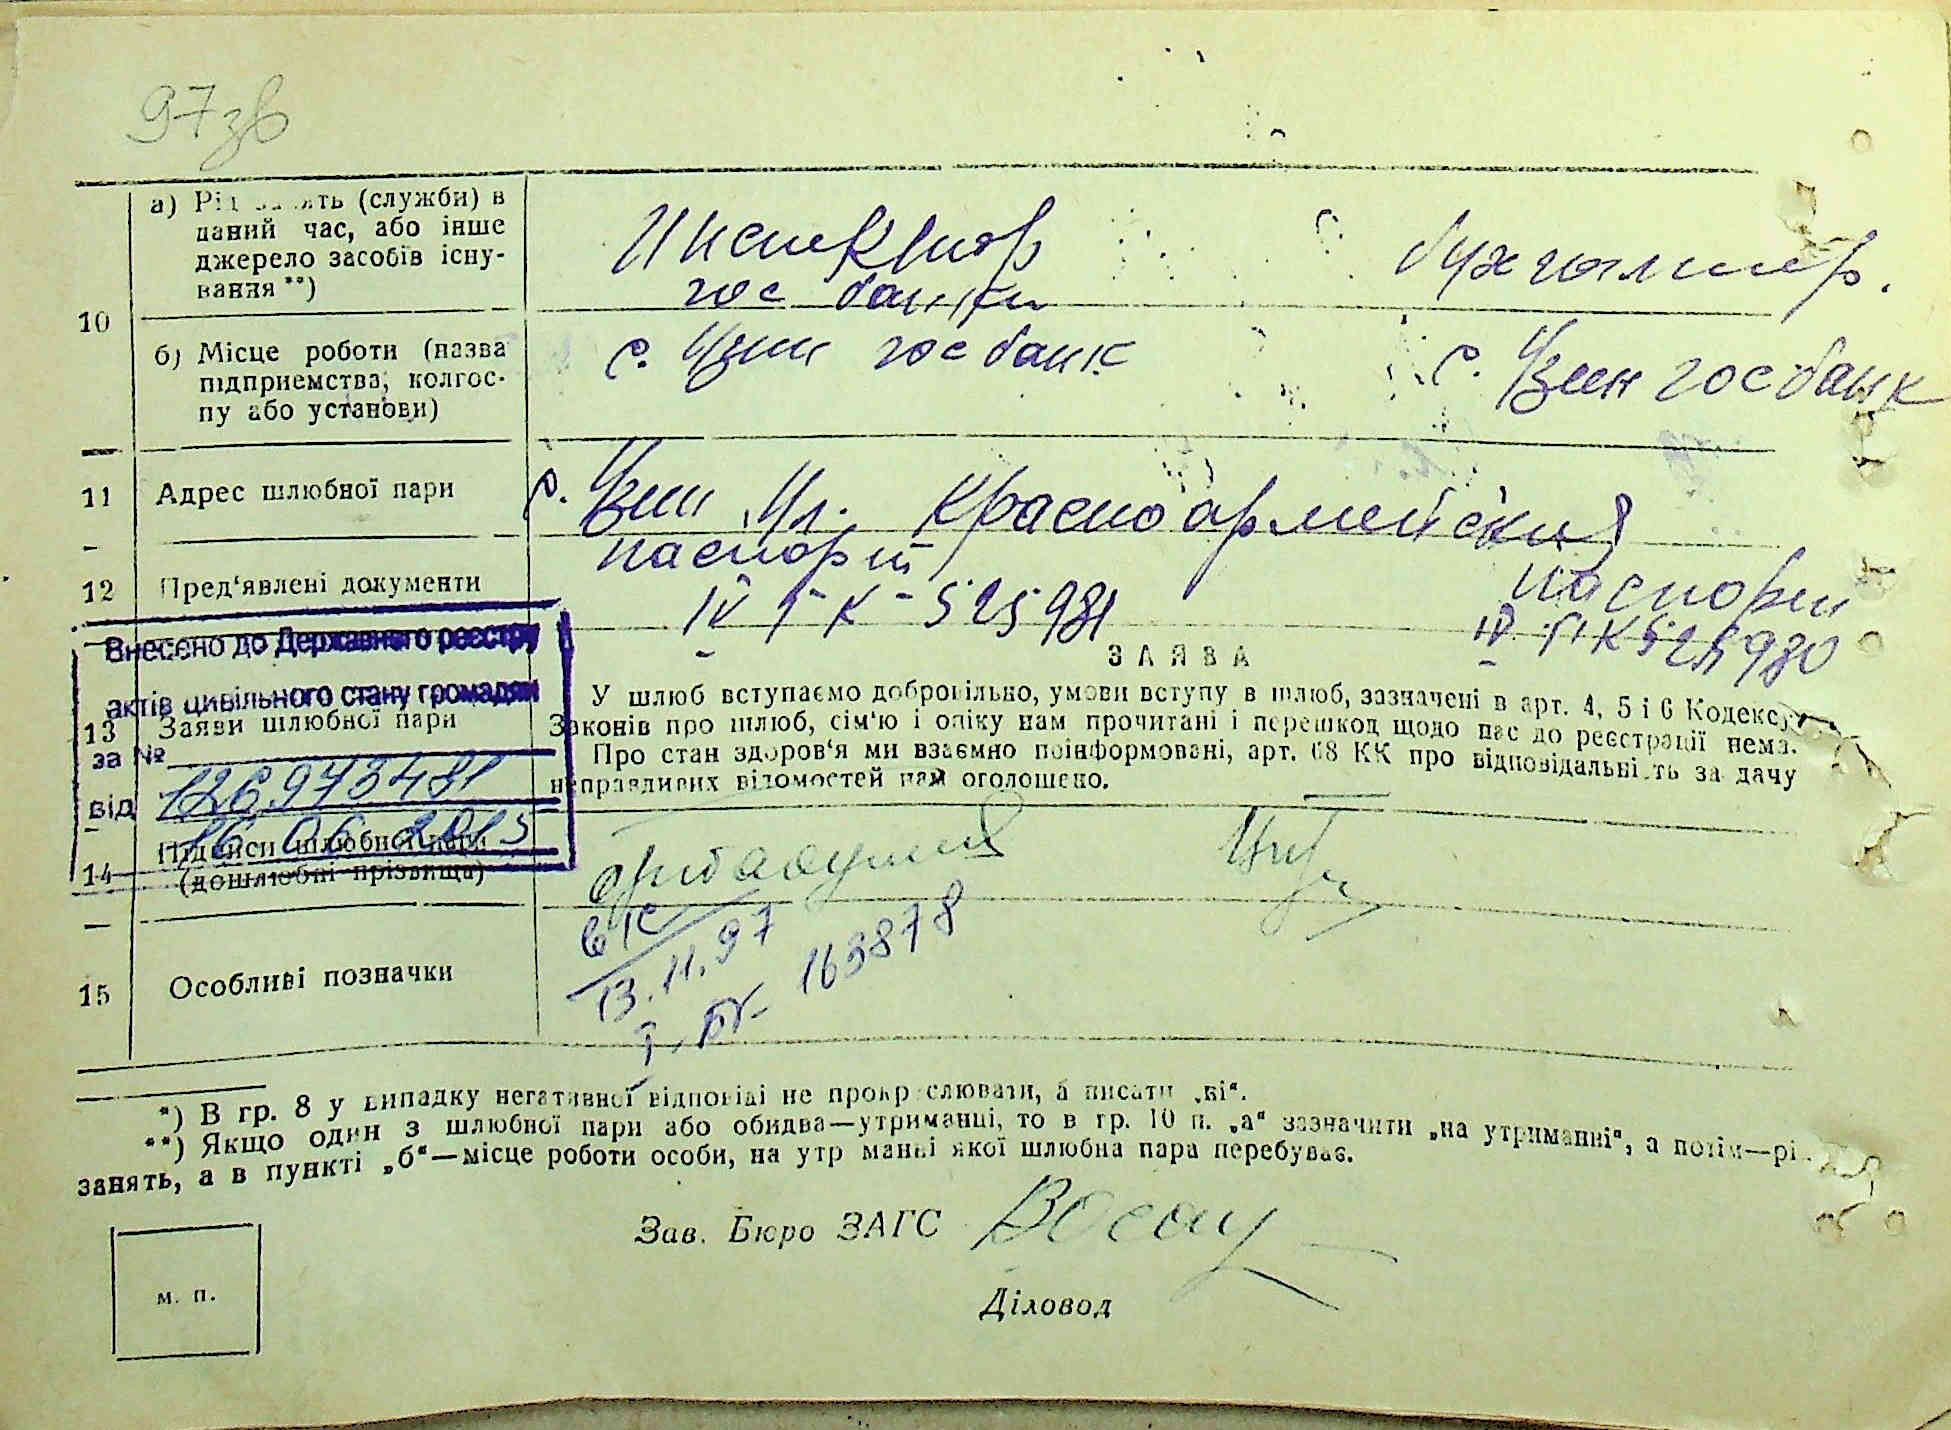 97зв
10
а) Рід занять (служби) в
даний час, або інше
джерело засобів існу-
вання **)
Инспектор
гос банки
бухгалтер.
б) Місце роботи (назва
підприємства, колгос-
пу або установи)
с. Узин госбанк
с. Узин госбанк
11 Адрес шлюбної пари
с. Узин Ул. Красноармейская
12 Пред‘явлені документи
паспорт
IV 525981
паспорт
525980
Внесено до Державного реєстру
актів цивільного стану громадян
за № 126973481
від 16 06 2013
13 Заяви шлюбної пари
ЗАЯВА
У шлюб вступаємо добровільно, умови вступу в шлюб, зазначені в арт. 4, 5 і 6 Кодексу
Законів про шлюб, сім‘ю і опіку нам прочитані і перешкод щодо нас до реєстрації нема.
Про стан здоров‘я ми взаємно поінформовані, арт. 68 КК про відповідальність за дачу
неправдивих відомостей нам оголошено.
14 Підписи шлюбної пари
(дошлюбні прізвища)
15 Особливі позначки
13.11.97
163878
*) В гр. 8 у випадку негативної відповіді не прокреслювати, а писати „ні“.
**) Якщо один з шлюбної пари або обидва—утриманці, то в гр. 10 п. „а“ зазначити „на утриманні“, а потім—рід
занять, а в пункті „б“—місце роботи особи, на утриманні якої шлюбна пара перебуває.
Зав. Бюро ЗАГС
Діловод
м. п.